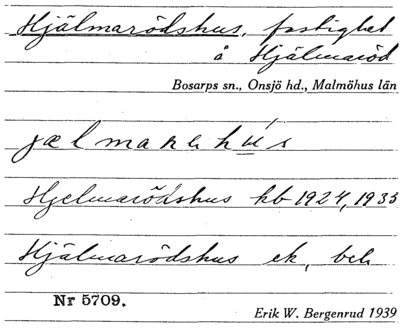 Hjälmarödshus, fastighet
å Hjälmaröd
Bosarps sn., Onsjö hd., Malmöhus län
Hjelmarödshus kb 1924, 1933
Hjälmarödshus ek, bel.
Nr 5709.
Erik W. Bergenrud 1939